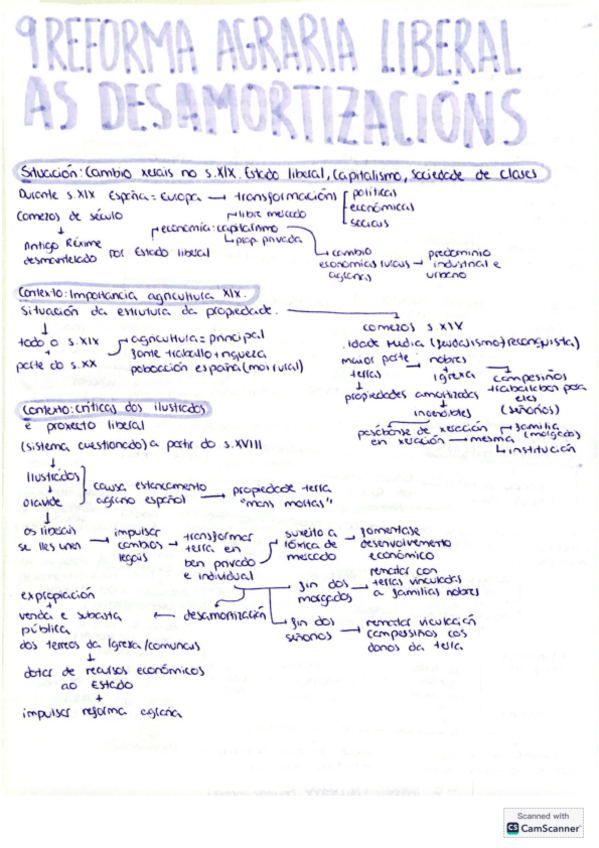 9 REFORMA AGRARIA LIBERAL
AS DESAMORTIZACIÓNS
Situación: Cambio xerais no s.XIX. Estado liberal, Capitalismo, Sociedade de clases
Durante s.XIX España = Europa → transformacións
políticas
económicas
sociais
Comezos de século
↓
Antigo Réxime
desmantelado por Estado liberal
economía: capitalismo
libre mercado
prop. privada
cambio
economías rurais → predominio
agrarias
industrial e
urbano
Contexto: Importancia agricultura XIX.
Situación da estrutura da propiedade.
↓
todo o s.XIX
+
parte do s.XX
agricultura = principal
fonte traballo + riqueza
poboación española (moi rural)
comezos s.XIX
Idade Media (feudalismo + reconquista)
maior parte nobres
terras
igrexa
campesiños
traballaban para
eles
(señoríos)
propiedades amortizadas
↓
invendibles
pasábanse de xeración
en xeración → mesma
familia
(morgados)
institución
Contexto: críticas dos ilustrados
e proxecto liberal
(sistema cuestionado) a partir do s.XVIII
↓
Ilustrados
↓
Olavide
causa estancamento
agrario español → propiedade terra
"mans mortas"
↓
os liberais
se lles unen → impulsar
cambios
legais → transformar
terra en
ben privado
e individual
suxeito a
lóxica de
mercado → fomentase
desenvolvemento
económico
fin dos
morgados → rematar con
terras vinculadas
a familias nobres
fin dos
señoríos → rematar vinculación
campesiños cos
donos da terra
desamortización
expropiación
venda e subasta
pública
dos terreos da Igrexa/comunais
↓
dotar de recursos económicos
ao Estado
+
impulsar reforma agraria
Scanned with
CS CamScanner